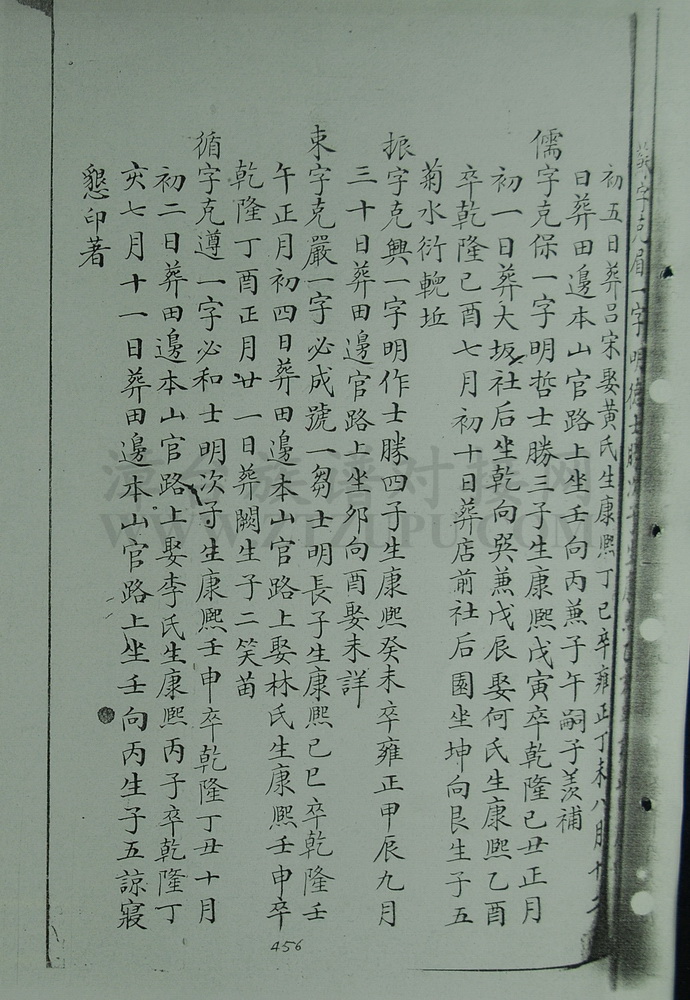 字克眉一字明德士勝次子
初五日葬呂宋娶黃氏生康熙丁巳卒雍正丁未八月十二
日葬田邊本山官路上坐壬向丙兼子午嗣子羨補
儒字克保一字明哲士勝三子生康熙戊寅卒乾隆己丑正月
初一日葬大坂社后坐乾向巽兼戊辰娶何氏生康熙乙酉
卒乾隆己酉七月初十日葬店前社后園坐坤向艮生子五
菊水衍輗坵
振字克興一字明作士勝四子生康熙癸未卒雍正甲辰九月
三十日葬田邊官路上坐邜向酉娶未詳
束字克嚴一字必成號一芻士明長子生康熙己巳卒乾隆壬
午正月初四日葬田邊本山官路上娶林氏生康熙壬申卒
乾隆丁酉正月廿一日葬闕生子二笑苗
循字克遵一字必和士明次子生康熙壬申卒乾隆丁丑十月
初二日葬田邊本山官路上娶李氏生康熙丙子卒乾隆丁
亥七月十一日葬田邊本山官路上坐壬向丙生子五諒寢
懇印著
456
WWW.ZTZUPU.COM